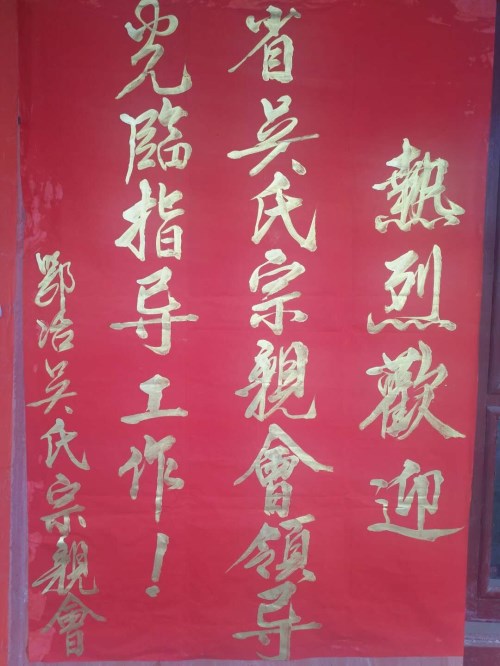 熱烈歡迎
省吴氏宗親會領导
光臨指导工作！
鄂冶吴氏宗親會